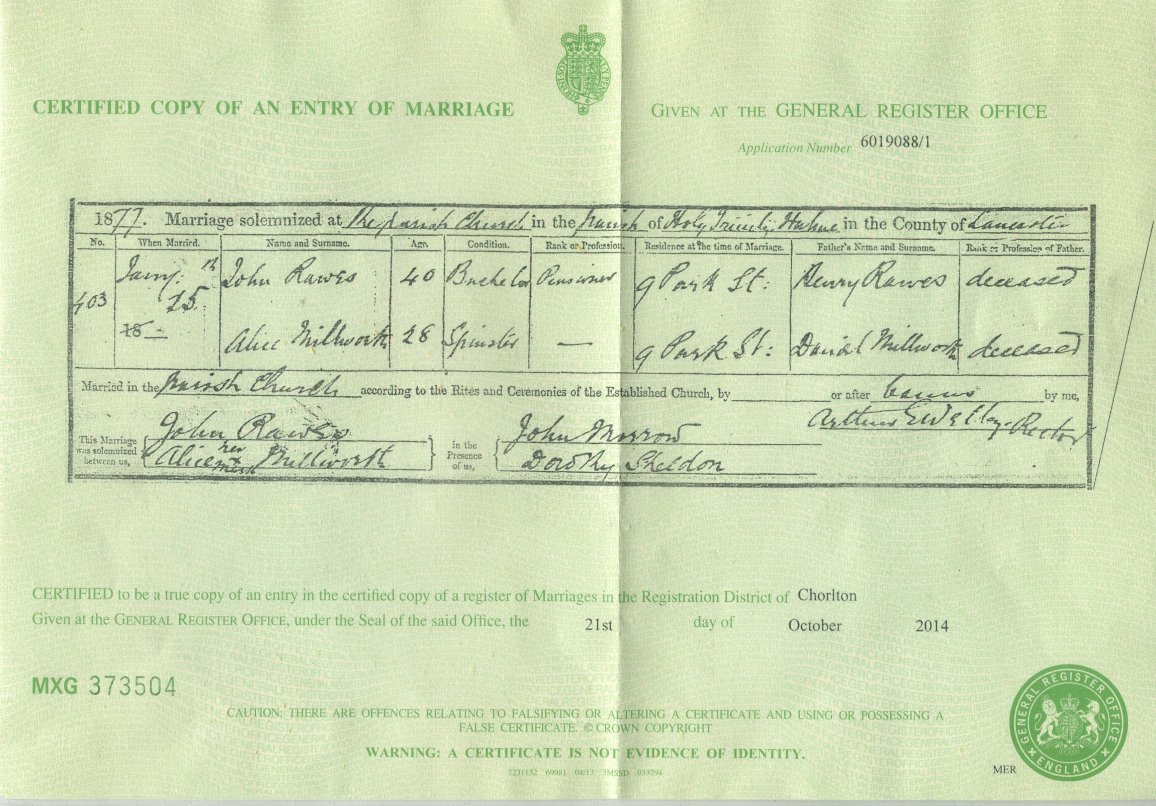 CERTIFIED COPY OF AN ENTRY OF MARRIAGE
GIVEN AT THE GENERAL REGISTER OFFICE
Application Number 6019088/1
1877. Marriage solemnized at the parish Church in the parish of Holy Trinity Hulme in the County of Lancaster
No. When Married. Name and Surname. Age. Condition. Rank or Profession. Residence at the time of Marriage. Father's Name and Surname. Rank or Profession of Father.
403 Jany. 15th John Rawes 40 Bachelor Pensioner 9 Park St: Henry Rawes deceased
18 Alice Millworth 28 Spinster — 9 Park St: Daniel Millworth deceased
Married in the parish Church according to the Rites and Ceremonies of the Established Church, by or after banns by me,
Arthur Rector
This Marriage was solemnized between us, John Rawes in the Presence of us, John Morrow
Alice her x mark Millworth Dorothy Sheldon
CERTIFIED to be a true copy of an entry in the certified copy of a register of Marriages in the Registration District of Chorlton
Given at the GENERAL REGISTER OFFICE, under the Seal of the said Office, the 21st day of October 2014
MXG 373504
CAUTION: THERE ARE OFFENCES RELATING TO FALSIFYING OR ALTERING A CERTIFICATE AND USING OR POSSESSING A
FALSE CERTIFICATE. © CROWN COPYRIGHT
WARNING: A CERTIFICATE IS NOT EVIDENCE OF IDENTITY.
7231132 69981 04/13 3MSSD 033294
MER
GENERAL REGISTER OFFICE
ENGLAND